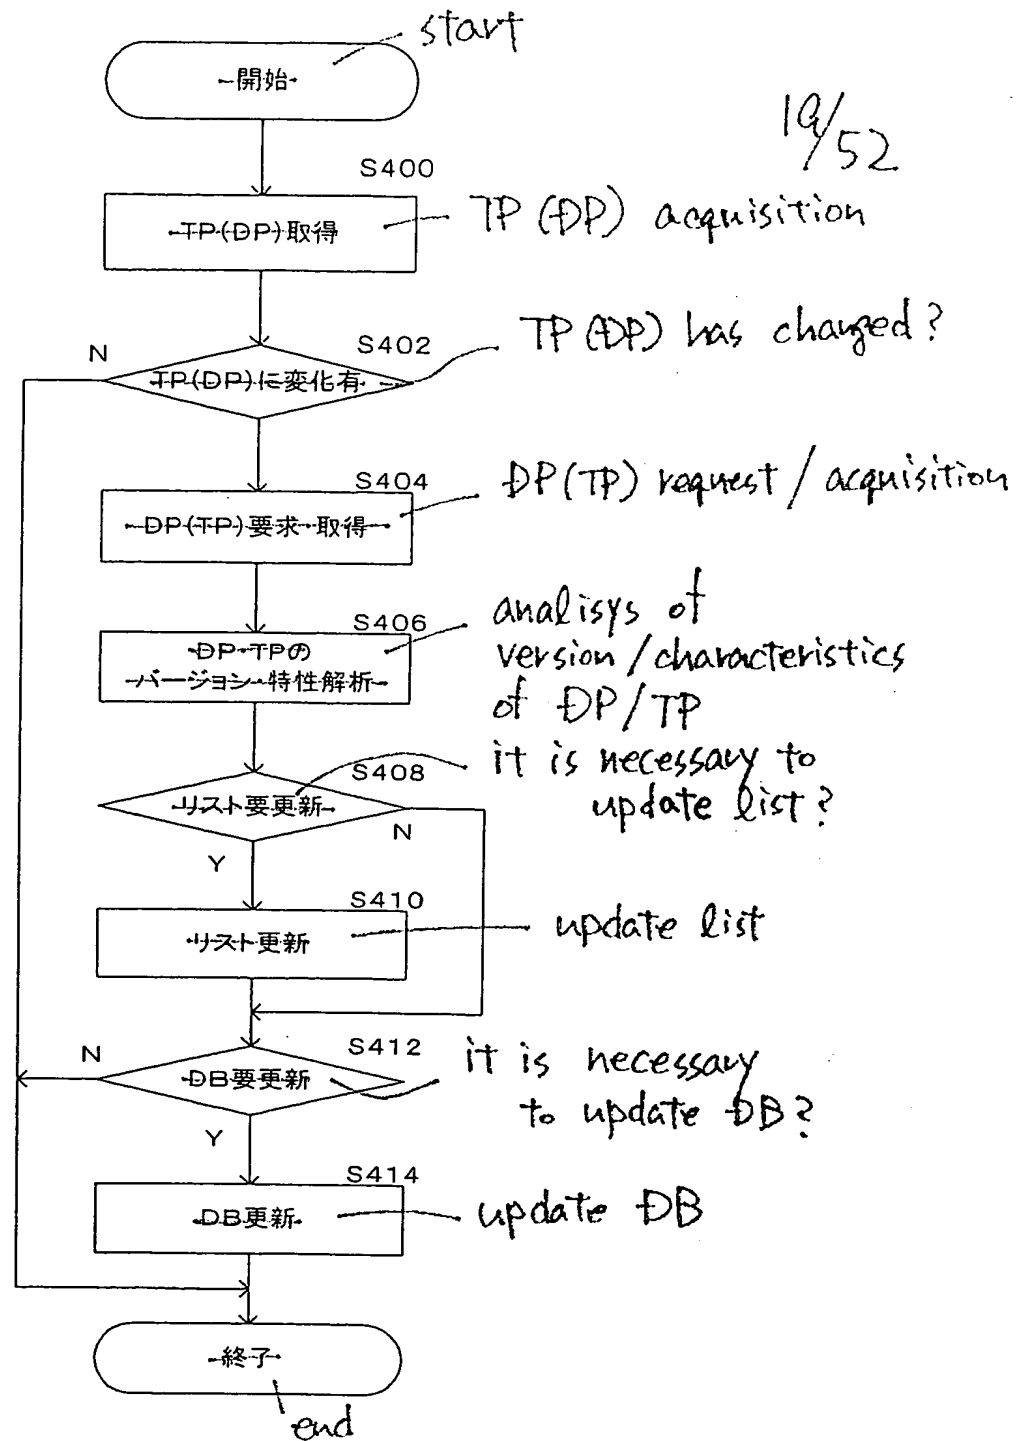 start
開始
19/52
S400
TP(DP)取得
TP(DP) acquisition
S402
N
TP(DP)に変化有
TP(DP) has changed?
S404
DP(TP)要求・取得
DP(TP) request / acquisition
S406
DP・TPの
バージョン・特性解析
analisys of
version/characteristics
of DP/TP
S408
リスト要更新
N
Y
it is necessary to
update list?
S410
リスト更新
update list
S412
N
DB要更新
Y
it is necessary
to update DB?
S414
DB更新
update DB
終了
end